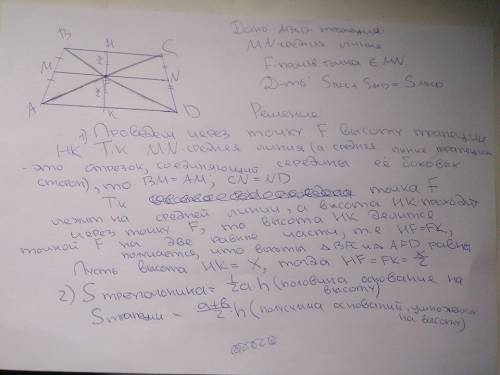 B H C
M F N
A K D
Дано: ABCD трапеция
MN средняя линия
F произв. точка ∈ MN
Д-ть: S_BFC + S_AFD =
Решение
1) Проведем через точку F высоту трапеции
HK. Т.К MN средняя линия (а средняя линия трапеции
- это отрезок, соединяющий середины её боковых
сторон), то BM = AM, CN = ND
Тк точка F
лежит на средней линии, а высота HK проходит
через точку F, то высота HK делится
точкой F на две равные части, т.е HF=FK,
получается, что высоты △BFC и △AFD равны
Пусть высота HK = x, тогда HF = FK = x/2
2) S треугольника = 1/2 a h (половина основания на
высоту)
S трапеции = a+b/2 · h (полусумма оснований, умноженная
на высоту)